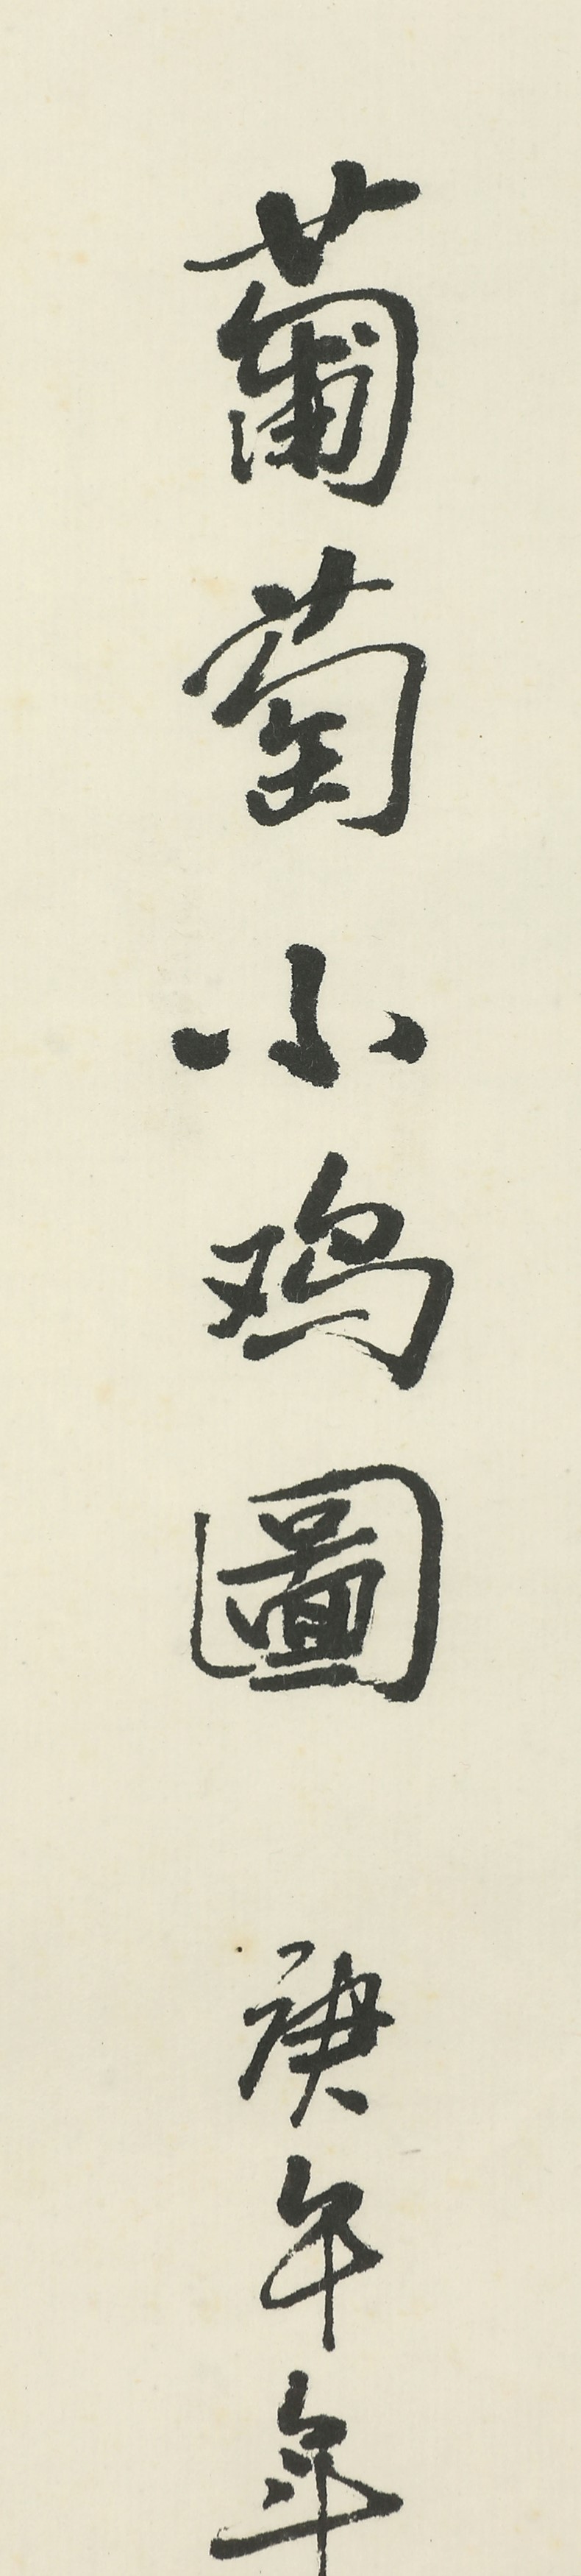 葡萄小鸡圖 庚午年